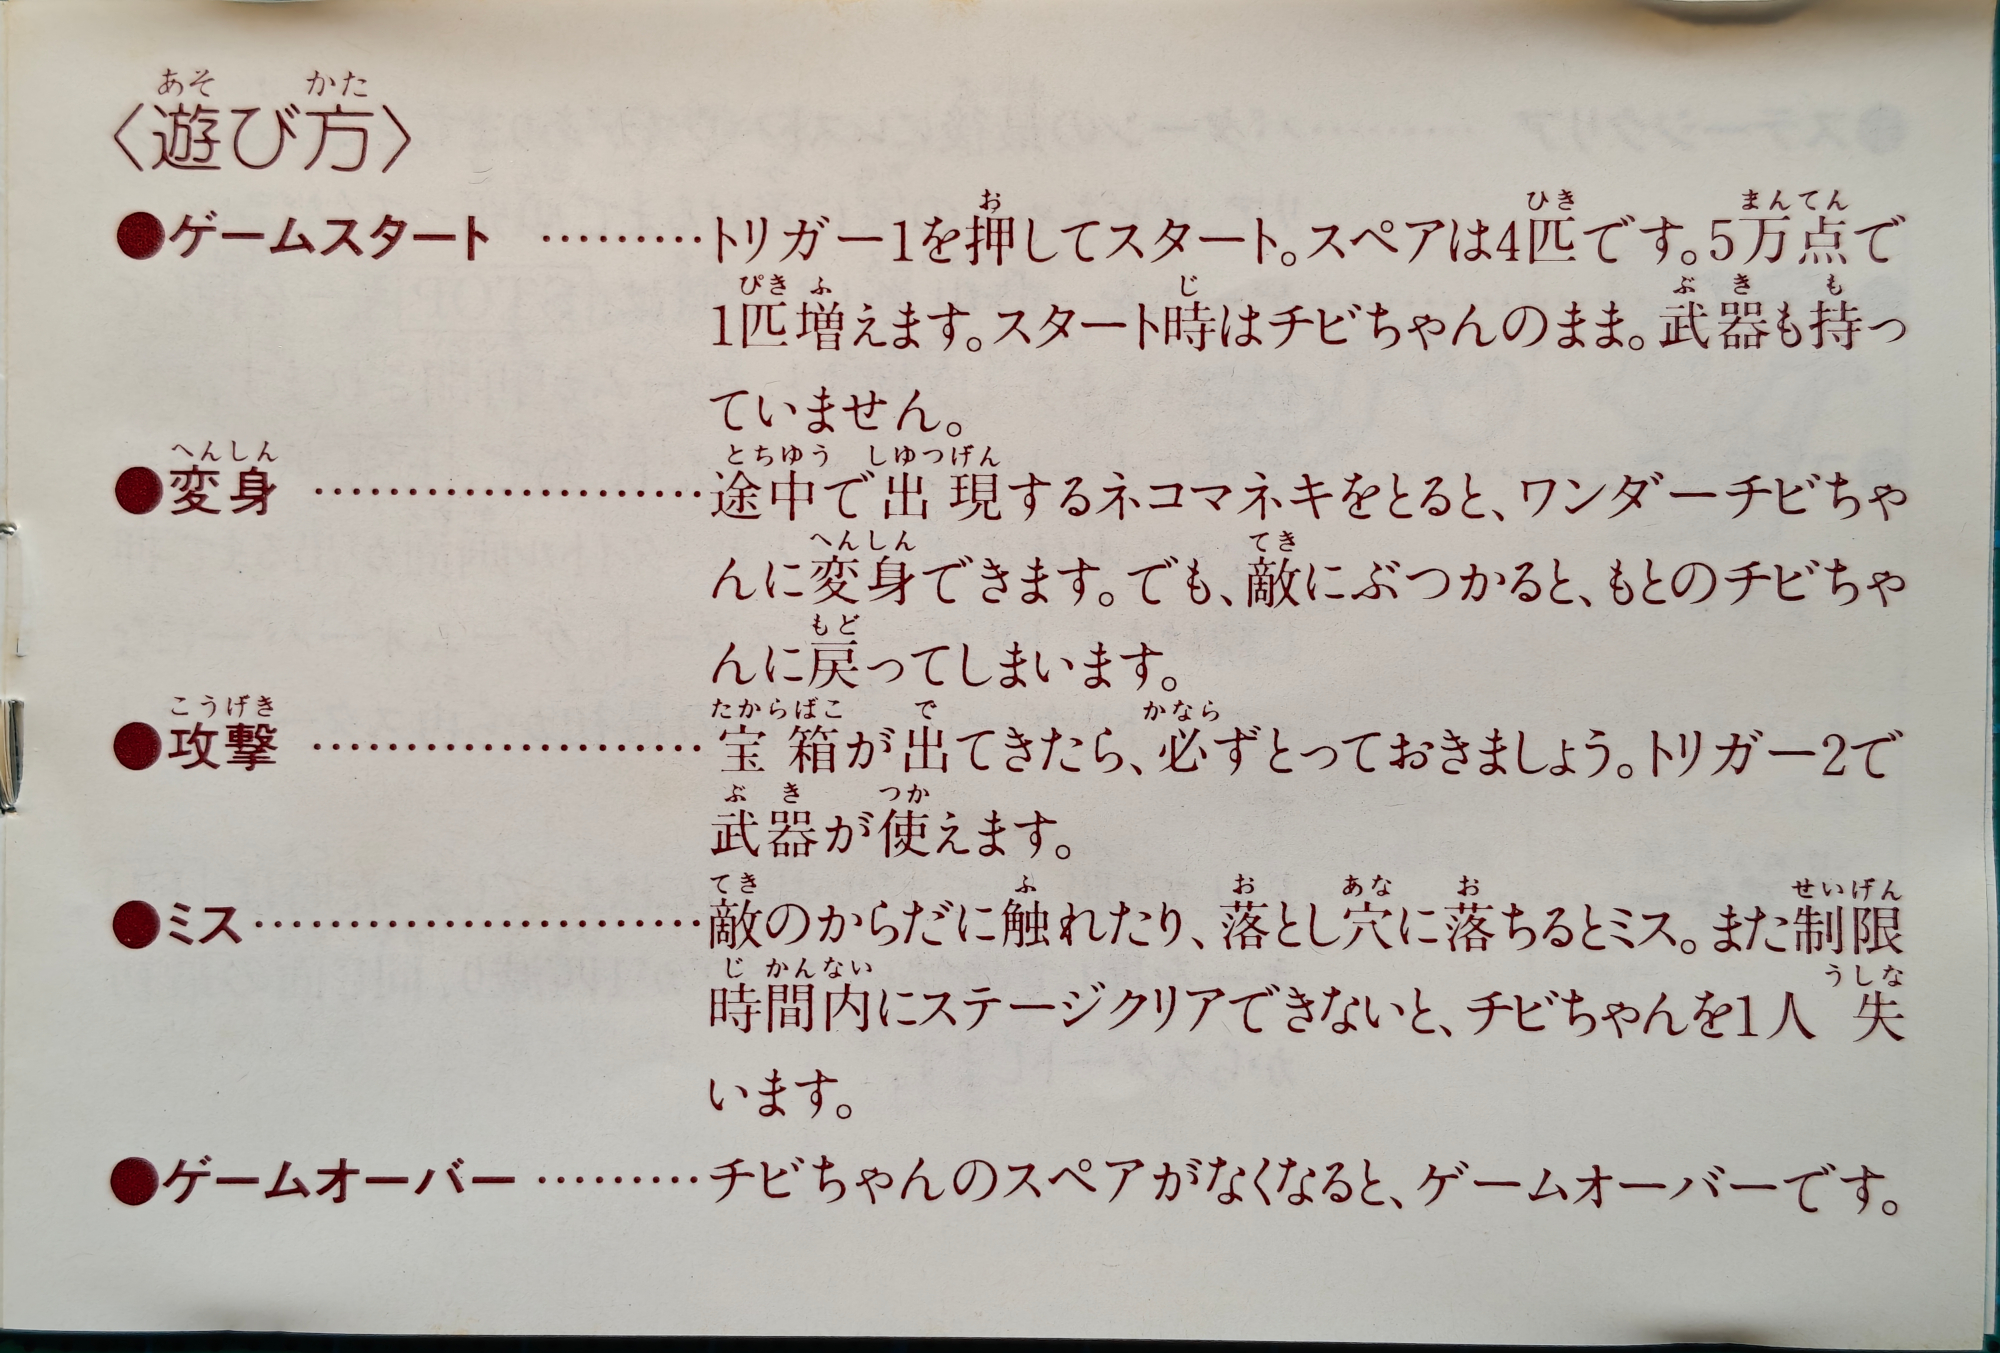 〈遊び方〉
●ゲームスタート ………トリガー1を押してスタート。スペアは4匹です。5万点で
1匹増えます。スタート時はチビちゃんのまま。武器も持っ
ていません。
●変身 …………………途中で出現するネコマネキをとると、ワンダーチビちゃ
んに変身できます。でも、敵にぶつかると、もとのチビちゃ
んに戻ってしまいます。
●攻撃 …………………宝箱が出てきたら、必ずとっておきましょう。トリガー2で
武器が使えます。
●ミス……………………敵のからだに触れたり、落とし穴に落ちるとミス。また制限
時間内にステージクリアできないと、チビちゃんを1人失
います。
●ゲームオーバー ………チビちゃんのスペアがなくなると、ゲームオーバーです。